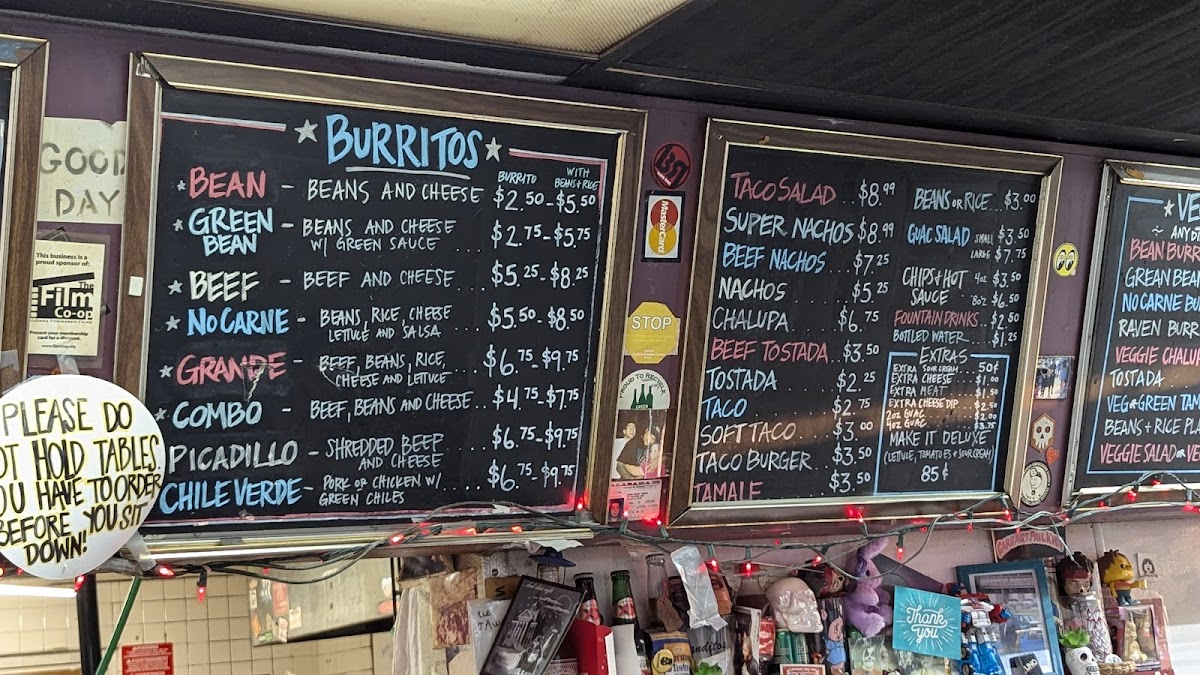 GOOD
DAY
This business is a
proud sponsor of:
The
Film
Co-op
Present your membership
card for a discount.
PLEASE DO
HOLD TABLES.
YOU HAVE TO ORDER
BEFORE YOU SIT
DOWN!
BURRITOS
BURRITO
WITH
BEANS + RICE
BEAN - BEANS AND CHEESE $2.50 - $5.50
GREEN BEAN - BEANS AND CHEESE
W/ GREEN SAUCE ... $2.75 - $5.75
BEEF - BEEF AND CHEESE ... $5.25 - $8.25
NO CARNE - BEANS, RICE, CHEESE
LETTUCE AND SALSA ... $5.50 - $8.50
GRANDE - BEEF, BEANS, RICE,
CHEESE AND LETTUCE ... $6.75 - $9.75
COMBO - BEEF, BEANS AND CHEESE ... $4.75 - $7.75
PICADILLO - SHREDDED BEEF
AND CHEESE ... $6.75 - $9.75
CHILE VERDE - PORK OR CHICKEN W/
GREEN CHILES ... $6.75 - $9.75
MasterCard
STOP
PROUD TO RECYCLE
TACO SALAD .. $8.99
SUPER NACHOS $8.99
BEEF NACHOS .. $7.25
NACHOS ... $5.25
CHALUPA ... $6.75
BEEF TOSTADA .. $3.50
TOSTADA ... $2.25
TACO ... $2.75
SOFT TACO .. $3.00
TACO BURGER .. $3.50
TAMALE ... $3.50
BEANS OR RICE .. $3.00
GUAC SALAD SMALL $3.50
LARGE $7.75
CHIPS + HOT
SAUCE 4oz $3.50
8oz $6.50
FOUNTAIN DRINKS .. $2.50
BOTTLED WATER ... $1.25
EXTRAS
EXTRA SOUR CREAM .. 50¢
EXTRA CHEESE ... $1.00
EXTRA MEAT ... $1.50
EXTRA CHEESE DIP ... $2.50
2oz GUAC ... $2.00
4oz GUAC ... $3.75
MAKE IT DELUXE
(LETTUCE, TOMATOES + SOUR CREAM)
85¢
VE
BEAN BURR
GREEN BEA
NO CARNE BU
RAVEN BURR
VEGGIE CHALU
TOSTADA
VEG + GREEN TAM
BEANS + RICE PLA
VEGGIE SALAD OR VE
Thank
you